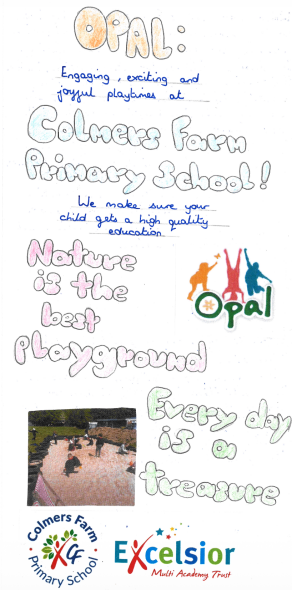 OPAL:
Engaging, exciting and
joyful playtimes at
Colmers Farm
Primary School!
We make sure your
child gets a high quality
education
Nature
is the
best
playground
Opal
Every day
is a
treasure
Colmers Farm
CF
Primary School
Excelsior
Multi Academy Trust